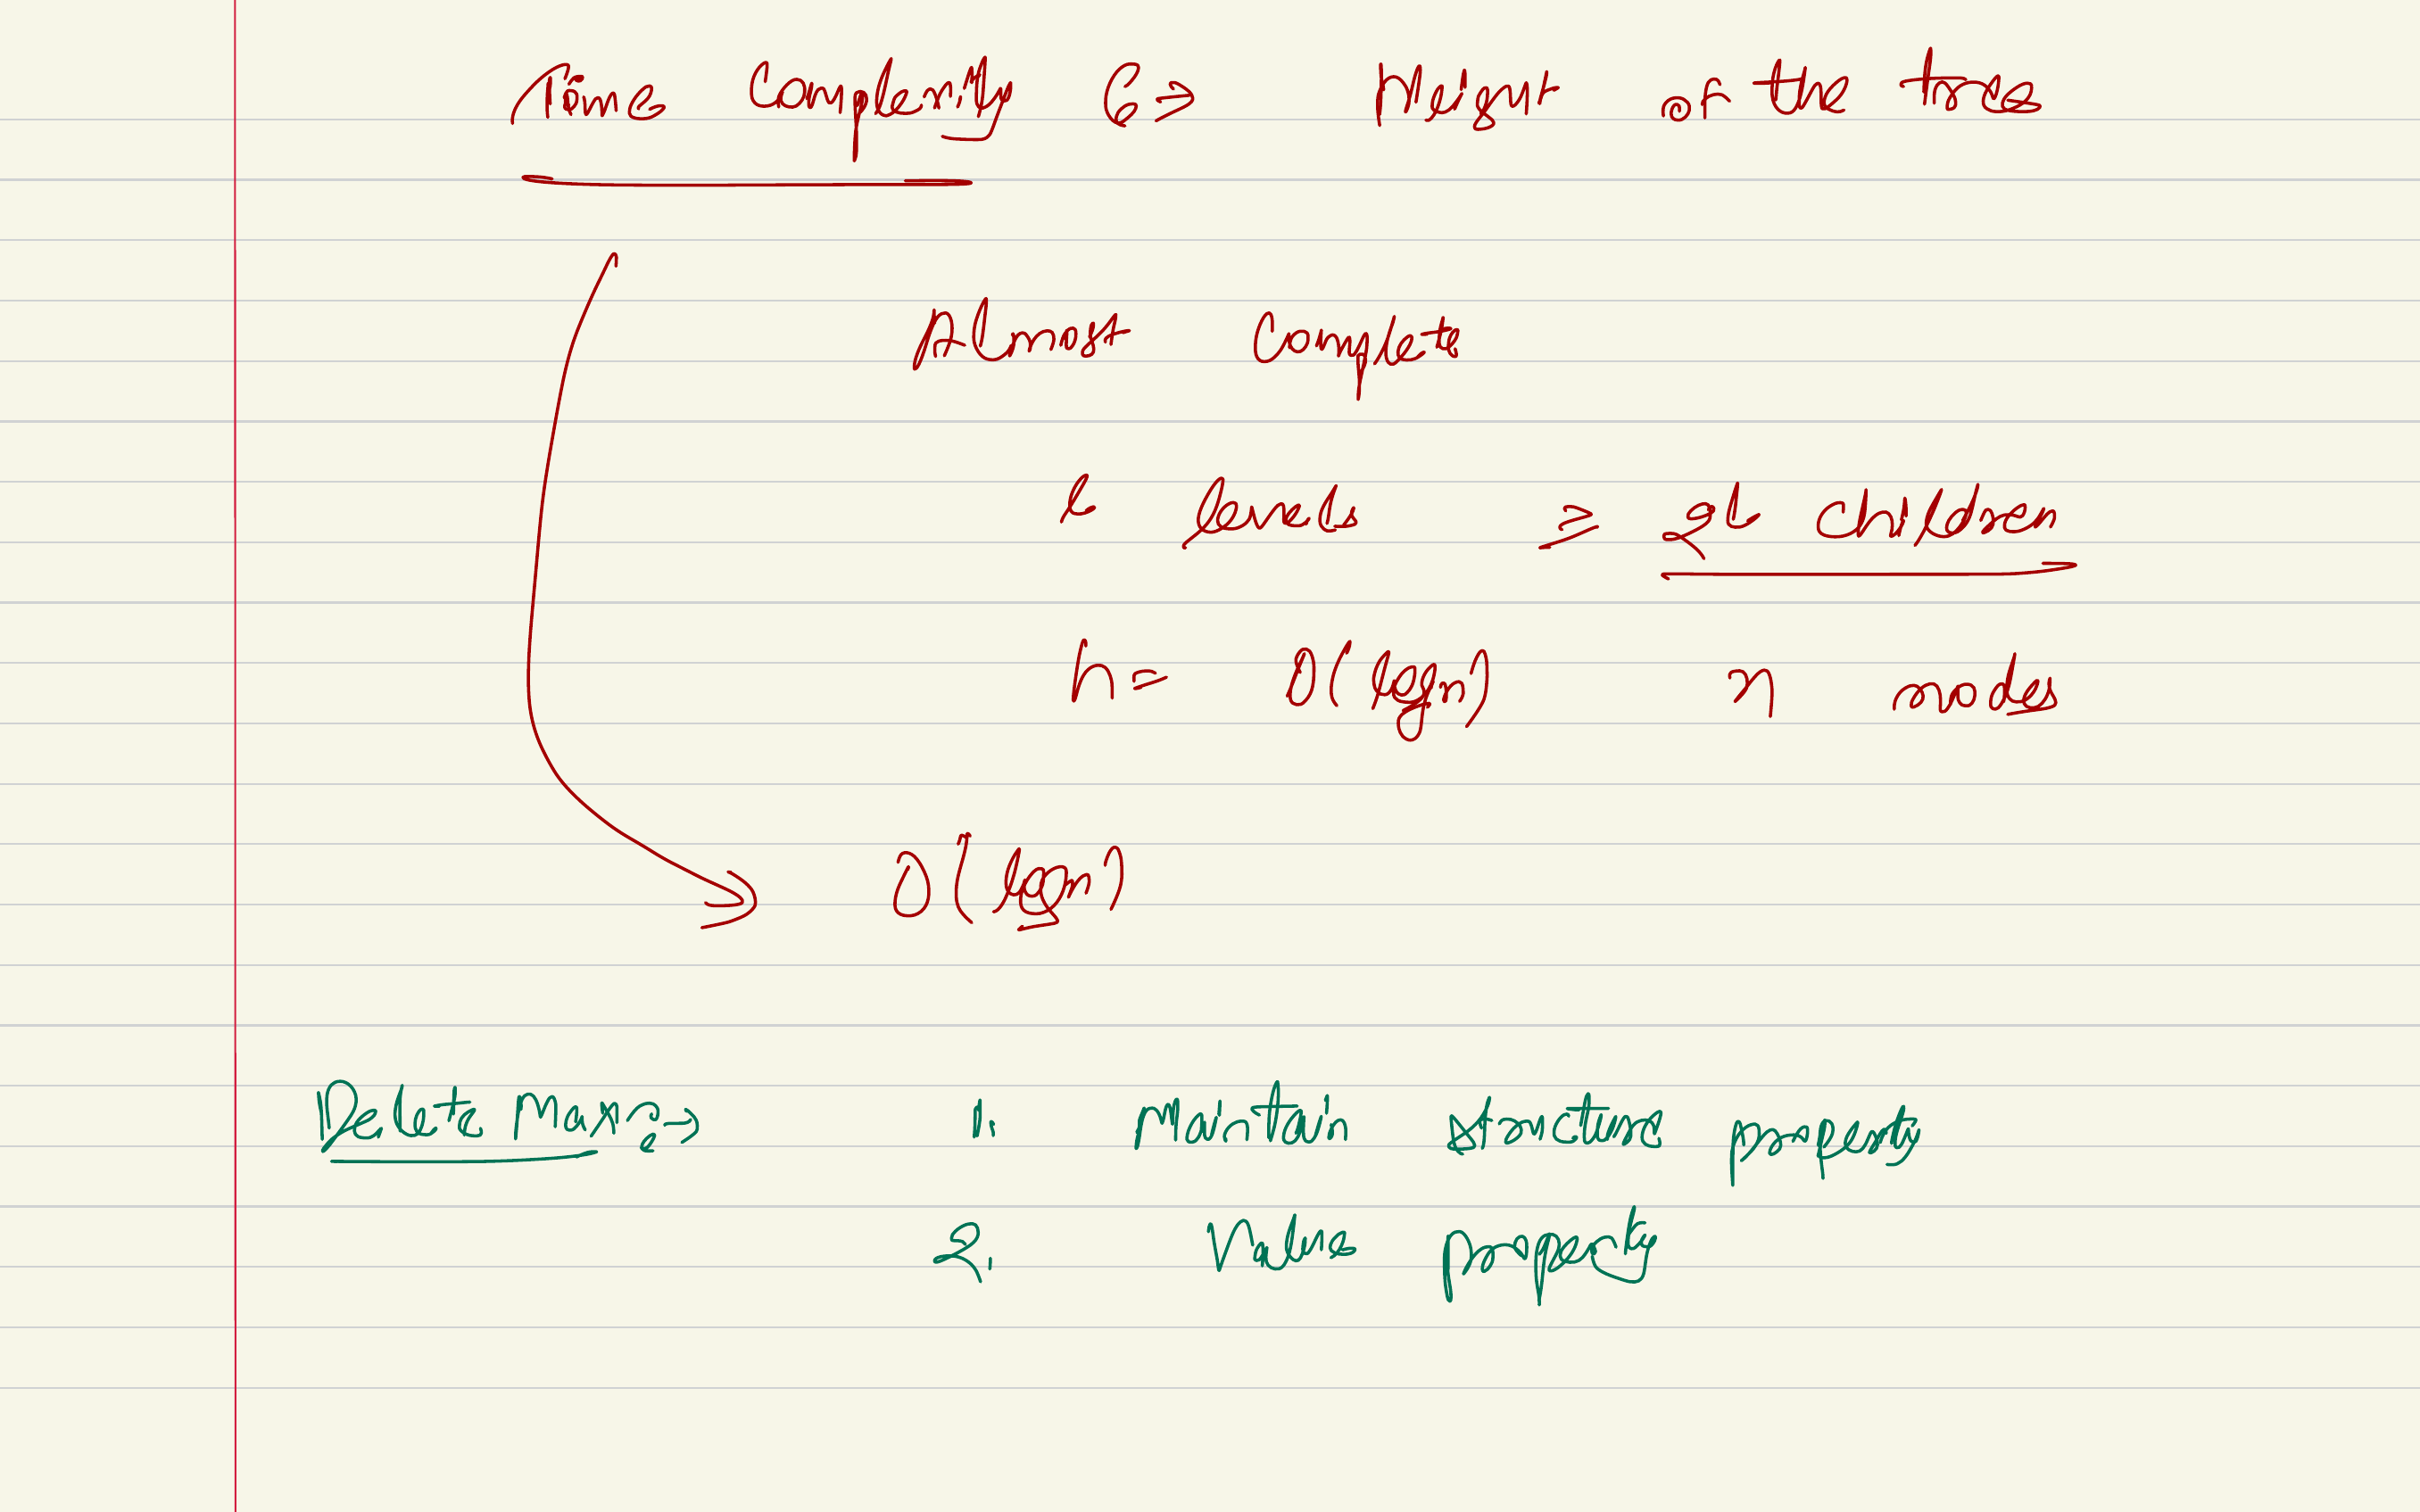 Time Complexity => Height of the tree
Almost Complete
l levels => 2^l children
h = O(lgn) n nodes
O(lgn)
Delete Max => 1. Maintain structure property
2. Value property